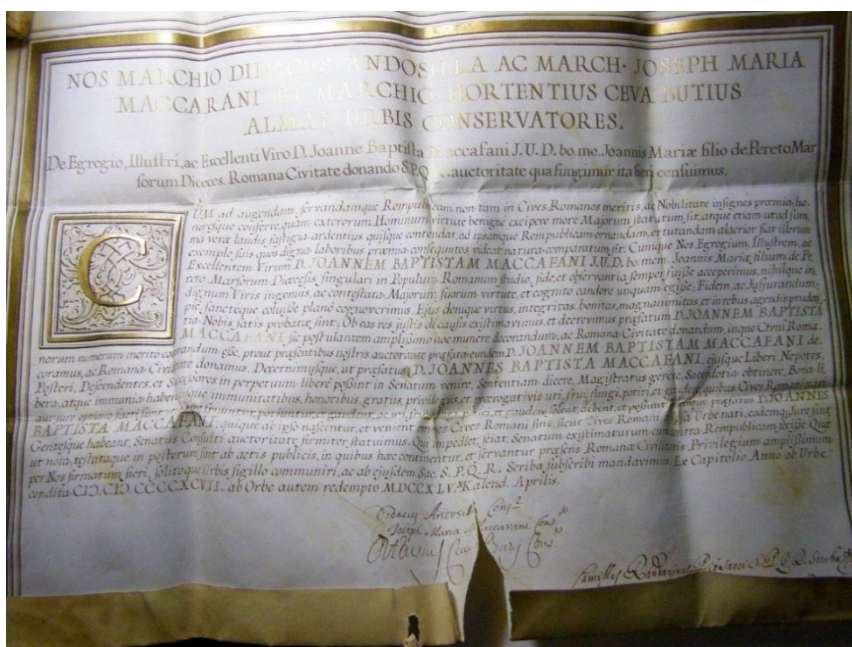 NOS MARCHIO DIDACUS ANDOSILLA AC MARCH. JOSEPH MARIA
MACCARANI ET MARCHIO HORTENTIUS CEVA BUTIUS
ALMAE URBIS CONSERVATORES.
De Egregio, Illustri, ac Excellenti Viro D. Joanne Baptista Maccafani J.U.D. bo. me. Joannis Mariæ filio de Pereto Mar
sorum Diœces. Romana Civitate donando S.P.Q.R. auctoritate qua fungimur ita fieri censuimus.
CUM ad augendam, servandamque Rempublicam non tam in Cives Romanos meritis, ac Nobilitate insignes præmia, ho
noresque conferre, quam exterorum Hominum virtute benigne excipere more Majorum statutum sit, atque etiam ut ad sum
ma veræ laudis fastigia ardentius quisque contendat, ad ipsamque Rempublicam ornandam, et tutandam alacrior fiat illorum
exemplo, quos digna laboribus præmia consequutos videat natura comparatum sit. Cumque Nos Egregium, Illustrem, ac
Excellentem Virum D. JOANNEM BAPTISTAM MACCAFANI J.U.D. bo. mem. Joannis Mariæ filium de Pe
reto Marsorum Diœcesis, singulari in Populum Romanum studio, fide, et observantia semper fuisse acceperimus, nihilque in
dignum Viris ingenuis, ac contestata Majorum suorum virtute, et cognito candore unquam egisse, Fidem, ac Jusjurandum
pie, sancteque coluisse plane cognoverimus. Ejus denique virtus, integritas, bonitas, magnanimitas, et in rebus agendis pruden
tia Nobis satis probata sint; Ob eas res justis de causis existimavimus, et decrevimus præfatum D. JOANNEM BAPTISTA
MACCAFANI sic postulantem amplissimo hoc munere decorandum, ac Romana Civitate donandum, inque Civium Roma
norum numerum merito cooptandum esse, prout præsentibus nostris auctoritate præfata eundem D. JOANNEM BAPTISTAM MACCAFANI de
coramus, ac Romana Civitate donamus. Decernimusque, ut præfatus D. JOANNES BAPTISTA MACCAFANI, ejusque Liberi, Nepotes,
Posteri, Descendentes, et Successores in perpetuum libere possint in Senatum venire, Sententiam dicere, Magistratus gerere, Sacerdotia obtinere, Bona li
bera, atque immunia habere, iisque immunitatibus, honoribus, gratiis, privilegiis, et prærogativis uti, frui, fungi, potiri, et gaudere, quibus Cives Romani nati
aut jure optimo facti sunt utuntur, fruuntur, potiuntur, et gaudent, ac uti, frui, fungi, potiri, et gaudere solent, debent, et possunt præfatus D. JOANNES
BAPTISTA MACCAFANI, quique ab ipso nascentur, et venient Cives Romani sint, sicut Cives Romani ipsa Urbe nati, eodemque Jure sint
Gentesque habeant, Senatus Consulti auctoritate firmiter statuimus. Qui impediet, sciat, Senatum existimaturum eum contra Rempublicam fecisse. Quæ
ut nota, testataque in posterum sint ab actis publicis, in quibus hæc continentur, et servantur præsens Romanæ Civitatis Privilegium amplissimum
per Nos firmatum fieri, solitoque Urbis sigillo communiri, ac ab ejusdem Sac. S. P. Q. R. Scriba subscribi mandavimus. Ex Capitolio Anno ab Urbe
condita CIƆ. CIƆ. CCCCXCVII. ab Orbe autem redempto MDCCXLV. Kalend. Aprilis.
Didacus
Joseph Maria Maccarani Cons.
Camillus S. P. Q. R. Scriba